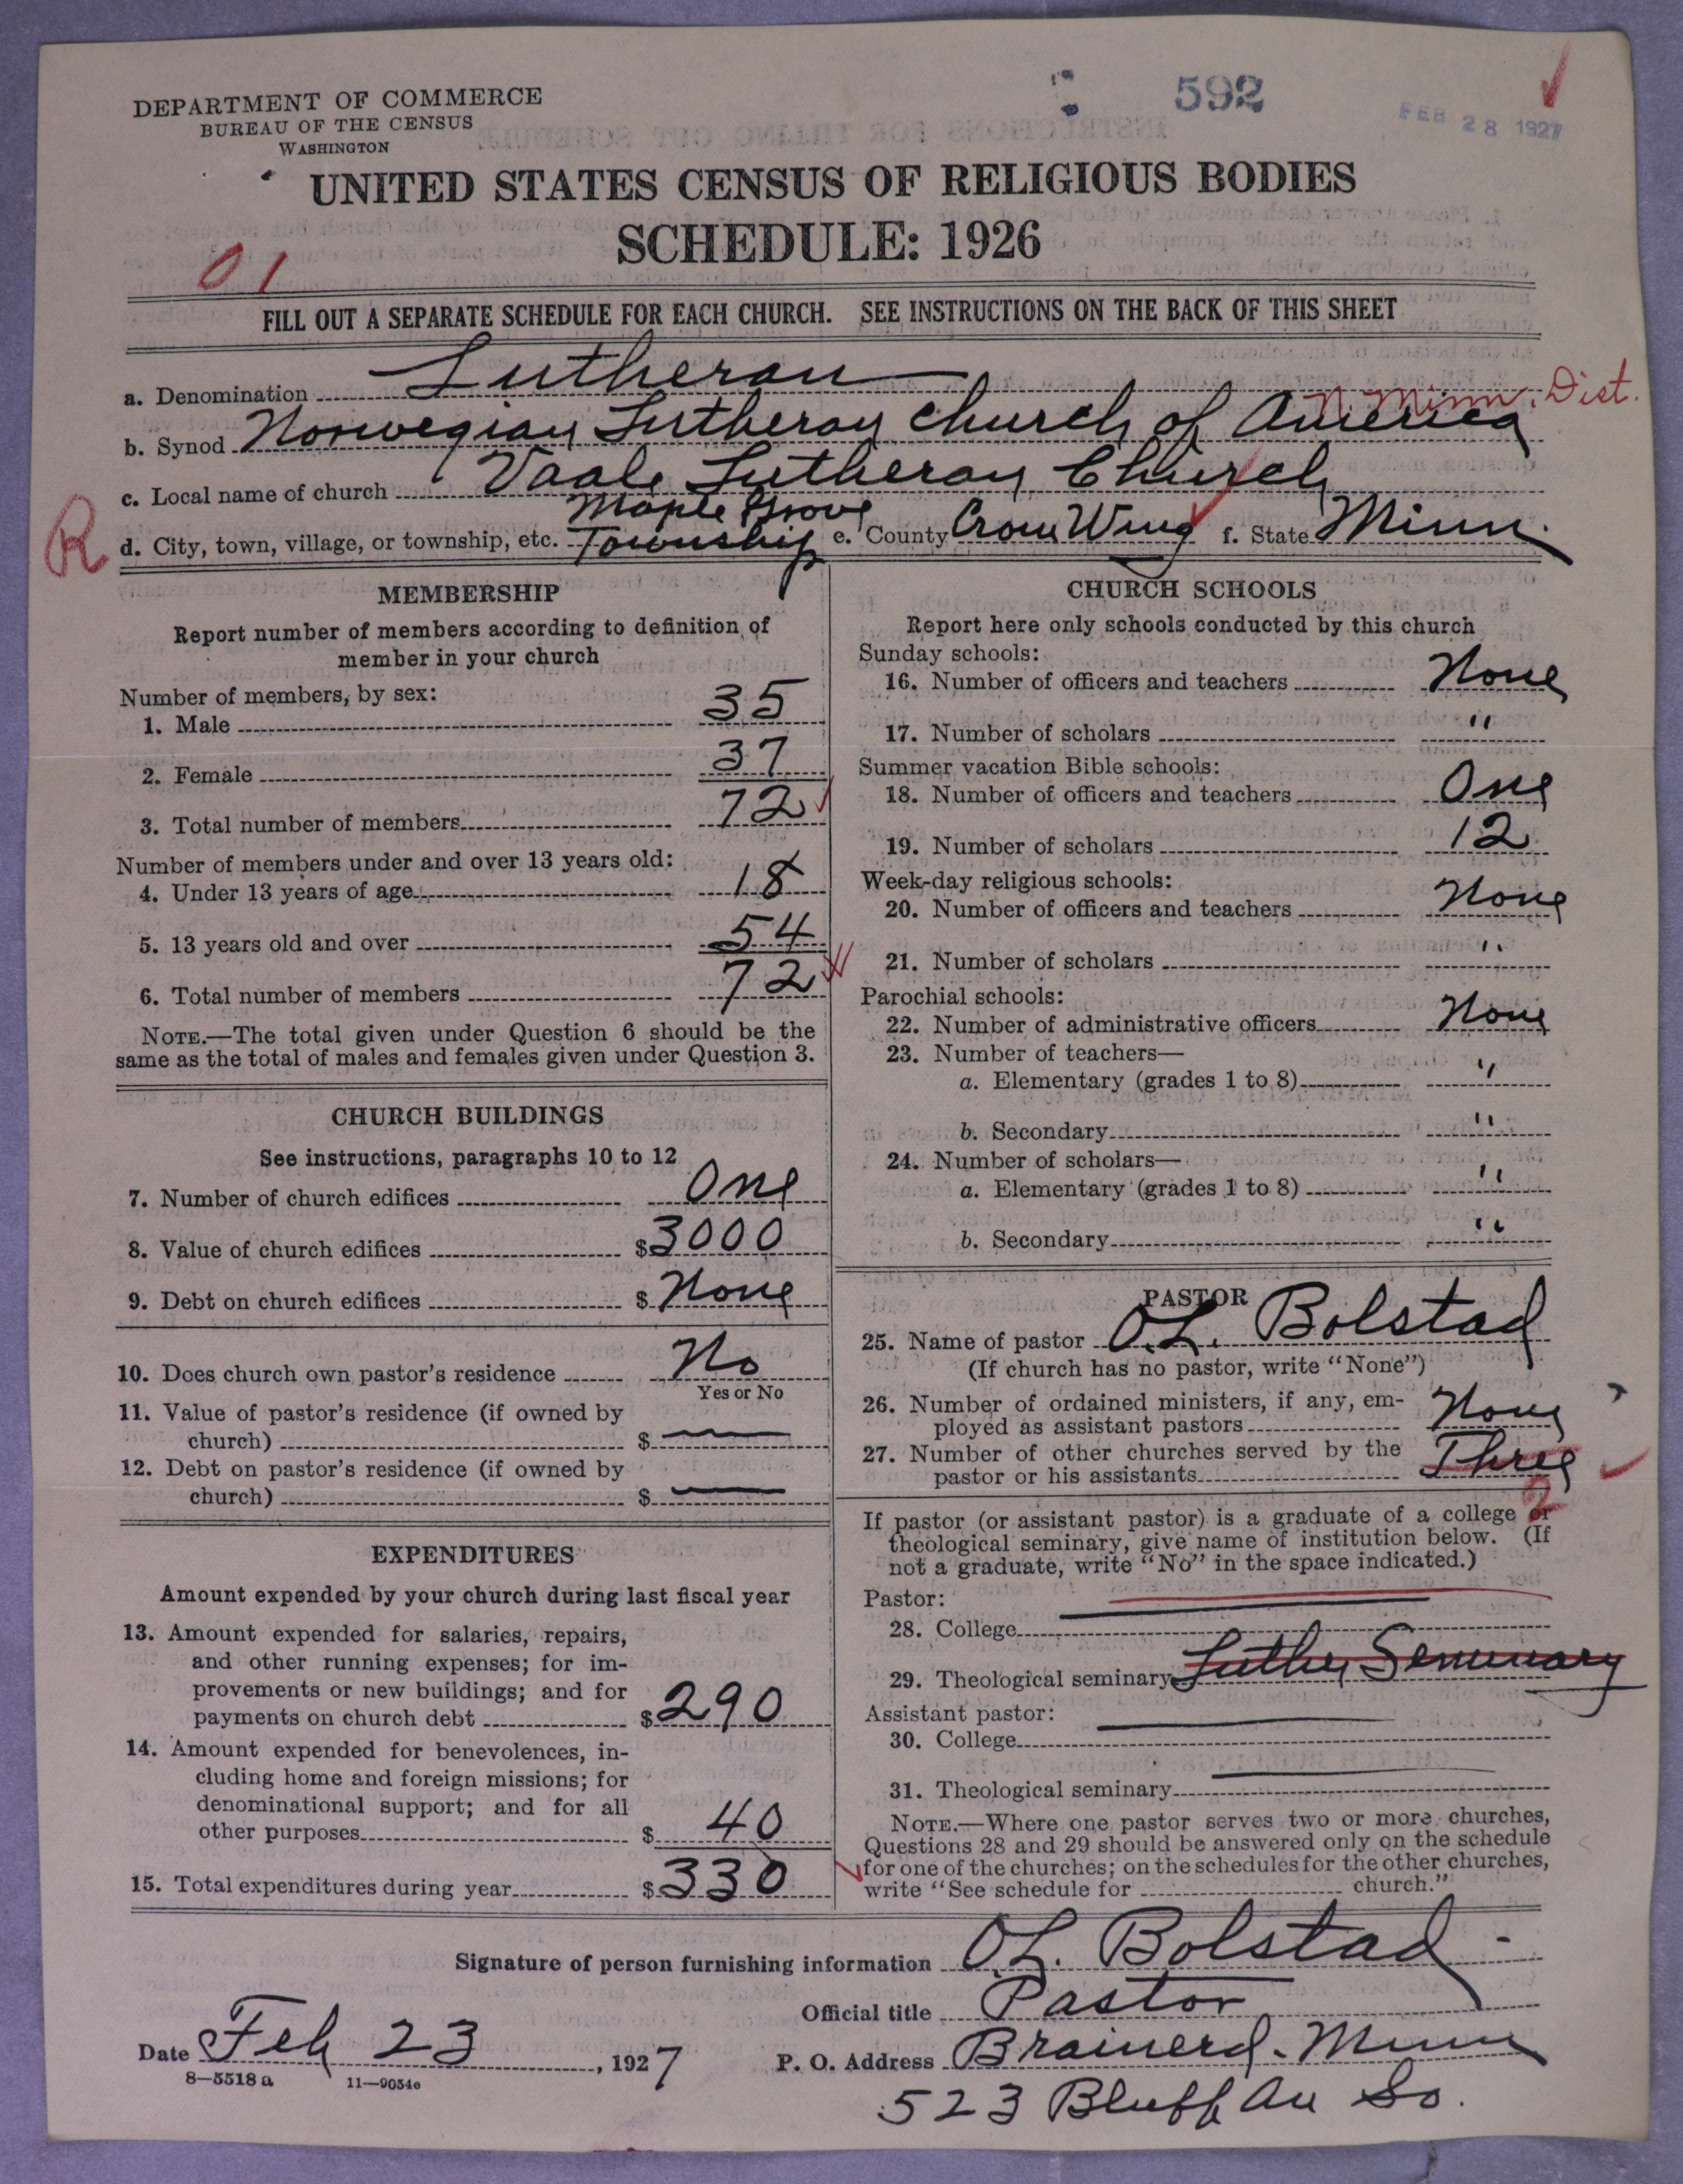 DEPARTMENT OF COMMERCE
BUREAU OF THE CENSUS
WASHINGTON
592
FEB 28 1927
UNITED STATES CENSUS OF RELIGIOUS BODIES
SCHEDULE: 1926
01
FILL OUT A SEPARATE SCHEDULE FOR EACH CHURCH. SEE INSTRUCTIONS ON THE BACK OF THIS SHEET
a. Denomination Lutheran
N. Minn. Dist.
b. Synod Norwegian Lutheran Church of America
c. Local name of church Vaale Lutheran Church
R
d. City, town, village, or township, etc. Maple Grove Township e. County Crow Wing f. State Minn.
MEMBERSHIP
Report number of members according to definition of
member in your church
Number of members, by sex:
1. Male 35
2. Female 37
3. Total number of members 72
Number of members under and over 13 years old:
4. Under 13 years of age 18
5. 13 years old and over 54
6. Total number of members 72
NOTE.—The total given under Question 6 should be the
same as the total of males and females given under Question 3.
CHURCH BUILDINGS
See instructions, paragraphs 10 to 12
7. Number of church edifices One
8. Value of church edifices $3000
9. Debt on church edifices $ None
10. Does church own pastor's residence No
Yes or No
11. Value of pastor's residence (if owned by
church) $ —
12. Debt on pastor's residence (if owned by
church) $ —
EXPENDITURES
Amount expended by your church during last fiscal year
13. Amount expended for salaries, repairs,
and other running expenses; for im-
provements or new buildings; and for
payments on church debt $290
14. Amount expended for benevolences, in-
cluding home and foreign missions; for
denominational support; and for all
other purposes $ 40
15. Total expenditures during year $330
CHURCH SCHOOLS
Report here only schools conducted by this church
Sunday schools:
16. Number of officers and teachers None
17. Number of scholars "
Summer vacation Bible schools:
18. Number of officers and teachers One
19. Number of scholars 12
Week-day religious schools:
20. Number of officers and teachers None
21. Number of scholars "
Parochial schools:
22. Number of administrative officers None
23. Number of teachers—
a. Elementary (grades 1 to 8) "
b. Secondary "
24. Number of scholars—
a. Elementary (grades 1 to 8) "
b. Secondary "
PASTOR
25. Name of pastor O.L. Bolstad
(If church has no pastor, write "None")
26. Number of ordained ministers, if any, em-
ployed as assistant pastors None
27. Number of other churches served by the
pastor or his assistants Three
2
If pastor (or assistant pastor) is a graduate of a college or
theological seminary, give name of institution below. (If
not a graduate, write "No" in the space indicated.)
Pastor:
28. College —
29. Theological seminary Luther Seminary
Assistant pastor:
30. College —
31. Theological seminary —
NOTE.—Where one pastor serves two or more churches,
Questions 28 and 29 should be answered only on the schedule
for one of the churches; on the schedules for the other churches,
write "See schedule for church."
Signature of person furnishing information O.L. Bolstad
Official title Pastor
Date Feb 23, 1927
P. O. Address Brainerd. Minn
523 Bluff Av So.
8—5518a 11—9054e